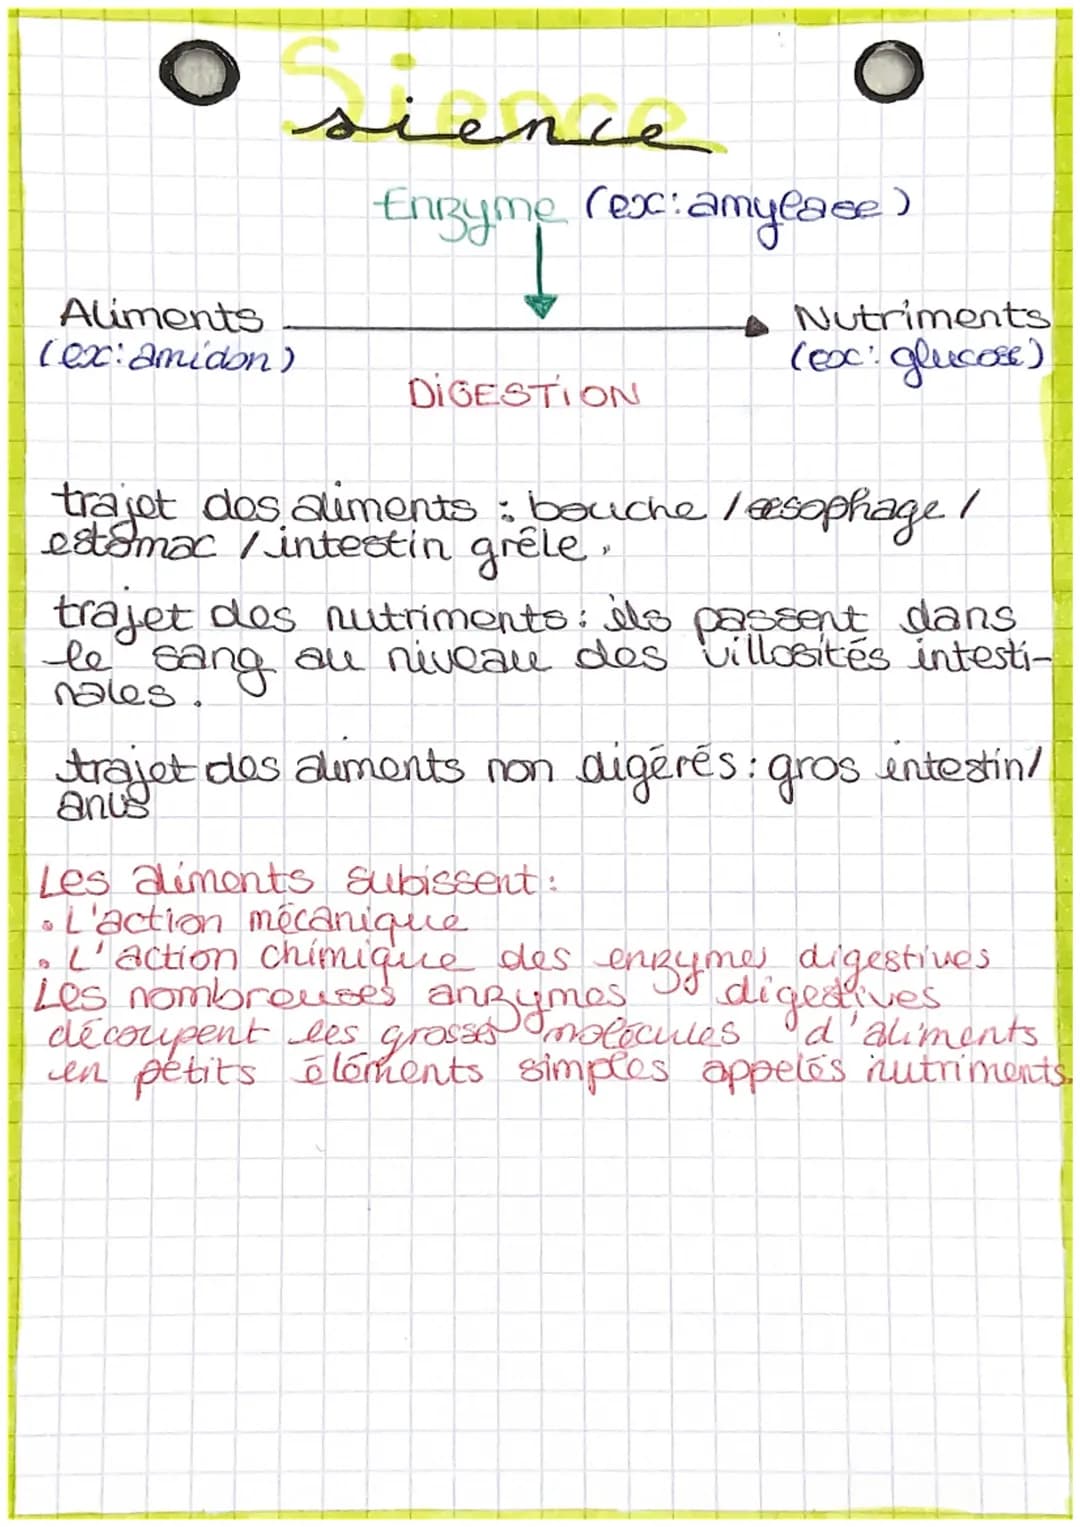 Sience
sience
Enzyme (ex: amylase)
Aliments
(ex: amidon)
Nutriments
(ex: glucose)
DIGESTION
trajet des aliments : bouche / œsophage /
estomac / intestin grêle.
trajet des nutriments : ils passent dans
le sang au niveau des villosités intesti-
nales.
trajet des aliments non digérés : gros intestin /
anus
Les aliments subissent :
• L'action mécanique
• L'action chimique des enzymes digestives
Les nombreuses anzymes digestives
découpent les grosses molécules d'aliments
en petits éléments simples appelés nutriments.